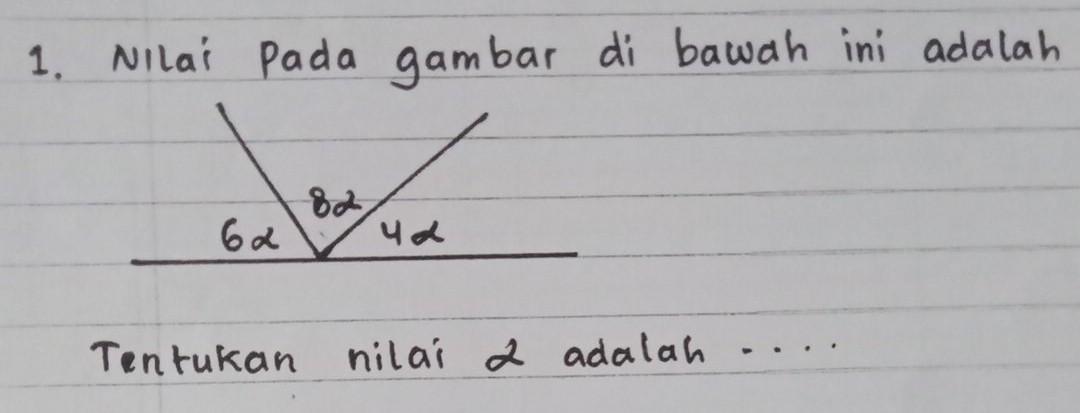 1. Nilai Pada gambar di bawah ini adalah
8α
6α 4α
Tentukan nilai α adalah ....